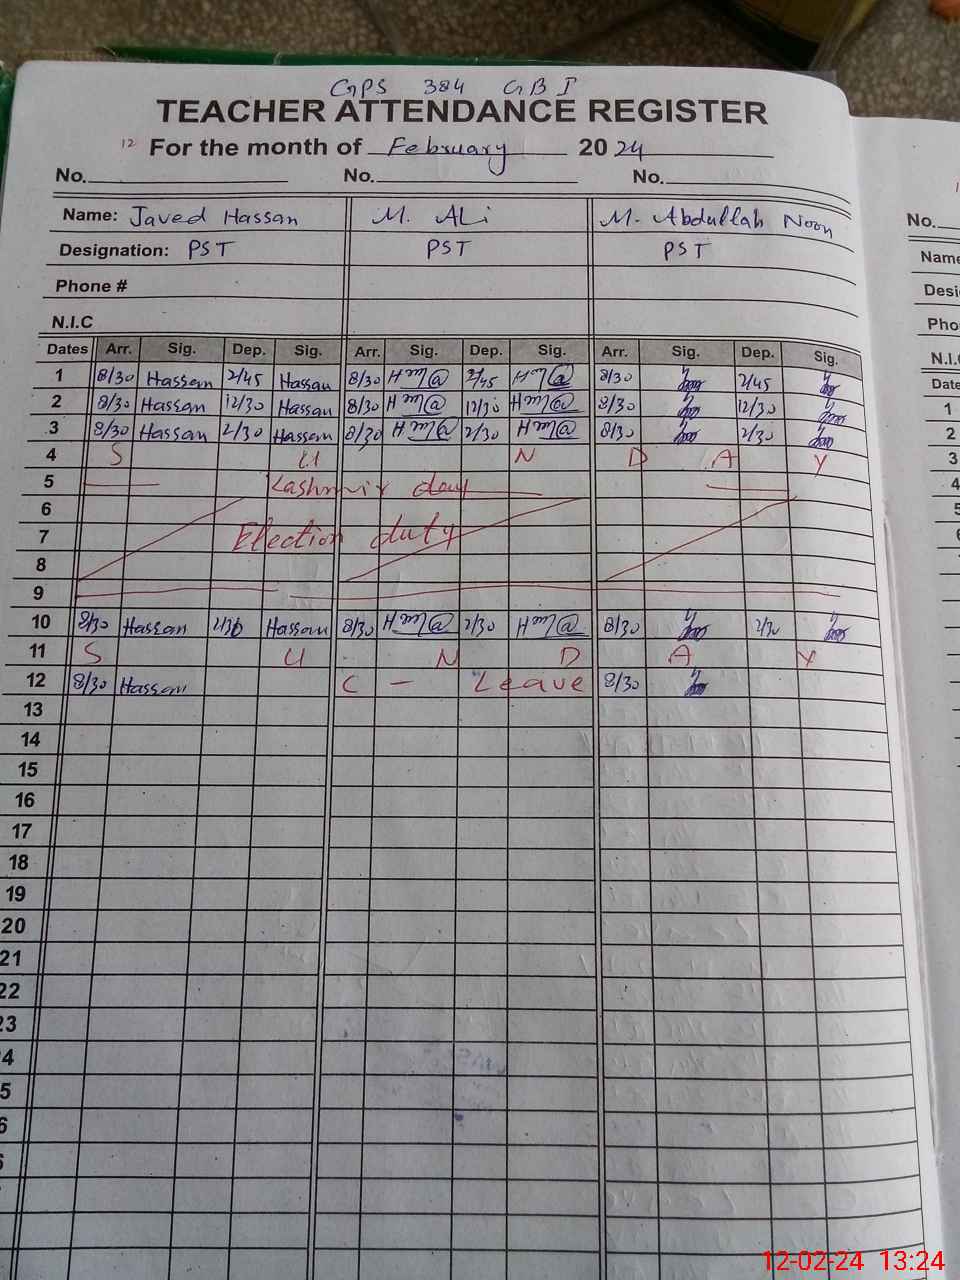 GPS 384 GB I
TEACHER ATTENDANCE REGISTER
12 For the month of February 20 24
No. No. No.
Name: Javed Hassan M. ALi M. Abdullah Noon
Designation: PST PST PST
Phone #
N.I.C
Dates Arr. Sig. Dep. Sig. Arr. Sig. Dep. Sig. Arr. Sig. Dep. Sig.
1 8/30 Hassan 2/45 Hassan 8/30 2/45 8/30 2/45
2 8/30 Hassan 12/30 Hassan 8/30 12/30 8/30 12/30
3 8/30 Hassan 2/30 Hassan 8/30 2/30 8/30 2/30
4 S U N D A Y
5 Kashmir day
6
7 Election duty
8
9
10 8/30 Hassan 2/30 Hassan 8/30 2/30 8/30 2/30
11 S U N D A Y
12 8/30 Hassan C - Leave 8/30
13
14
15
16
17
18
19
20
21
22
23
No.
Name
Desi
Pho
N.I.
Date
1
2
3
4
5
12-02-24 13:24